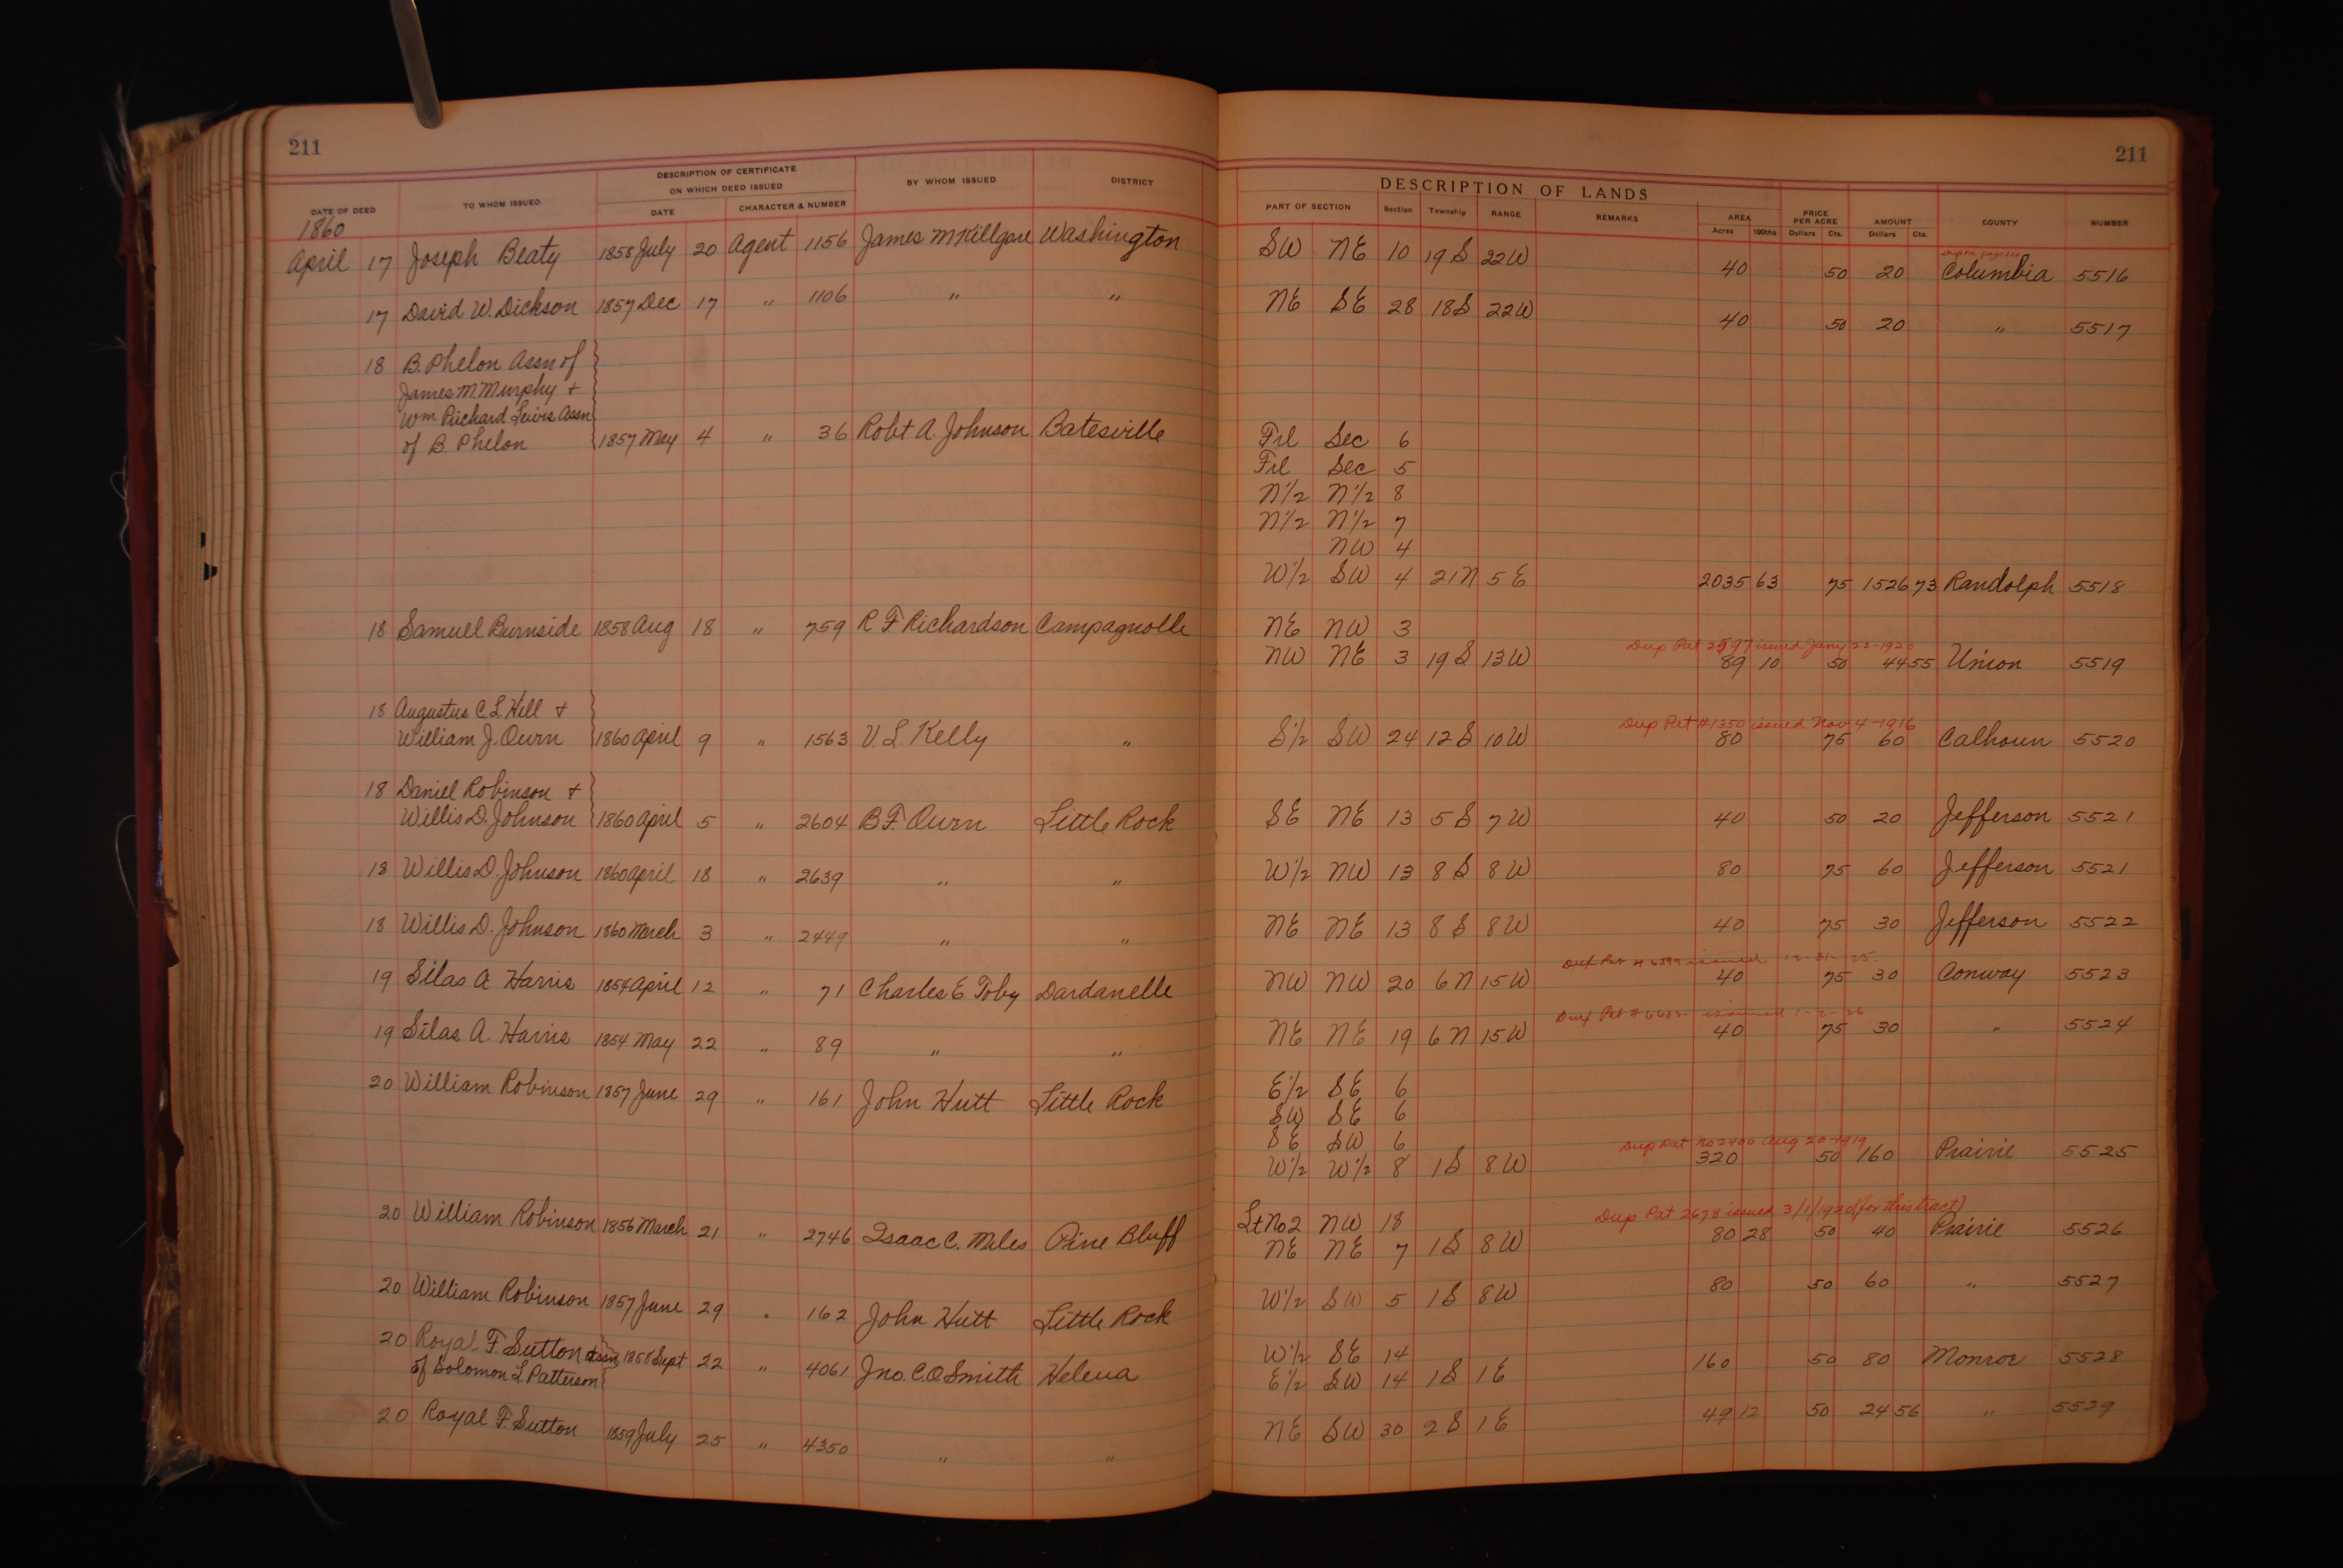 211
211
DESCRIPTION OF CERTIFICATE
ON WHICH DEED ISSUED
DATE OF DEED TO WHOM ISSUED DATE CHARACTER & NUMBER BY WHOM ISSUED DISTRICT
DESCRIPTION OF LANDS
PART OF SECTION Section Township RANGE REMARKS AREA Acres 100ths PRICE PER ACRE Dollars Cts. AMOUNT Dollars Cts. COUNTY NUMBER
1860
April 17 Joseph Beaty 1858 July 20 Agent 1156 James M Killgore Washington SW NE 10 19 S 22W 40 50 20 Columbia 5516
17 David W. Dickson 1857 Dec 17 " 1106 " " NE SE 28 18S 22W 40 50 20 " 5517
18 B. Phelon Assn of
James M. Murphy +
Wm Richard Lewis Assn
of B. Phelon 1857 May 4 " 36 Robt A. Johnson Batesville Frl Sec 6
Frl Sec 5
N1/2 N1/2 8
N1/2 N1/2 7
NW 4
W1/2 SW 4 21N 5 E 2035 63 75 1526 73 Randolph 5518
18 Samuel Burnside 1858 Aug 18 " 759 R F Richardson Campagnolle NE NW 3
Dup Pat 2597 issued Jany 22-1920
NW NE 3 19 S 13W 89 10 50 44 55 Union 5519
18 Augustus C. L Hill +
Dup Pat #1350 issued Nov 4-1916
William J. Owen 1860 April 9 " 1563 V. L. Kelly " S1/2 SW 24 12 S 10W 80 75 60 Calhoun 5520
18 Daniel Robinson +
Willis D. Johnson 1860 April 5 " 2604 B.F. Owen Little Rock SE NE 13 5 S 7 W 40 50 20 Jefferson 5521
18 Willis D. Johnson 1860 April 18 " 2639 " " W1/2 NW 13 8 S 8 W 80 75 60 Jefferson 5521
18 Willis D. Johnson 1860 March 3 " 2449 " " NE NE 13 8 S 8W 40 75 30 Jefferson 5522
Dup Pat # issued 12-31-25
19 Silas A Harris 1854 April 12 " 71 Charles E. Toby Dardanelle NW NW 20 6 N 15W 40 75 30 Conway 5523
Dup Pat # issued
19 Silas A. Harris 1854 May 22 " 89 " " NE NE 19 6 N 15W 40 75 30 " 5524
20 William Robinson 1857 June 29 " 161 John Hutt Little Rock E1/2 SE 6
SW SE 6
SE SW 6
Dup Pat No 2400 Aug 20-1919
W1/2 W1/2 8 1S 8 W 320 50 160 Prairie 5525
20 William Robinson 1856 March 21 " 2746 Isaac C. Miles Pine Bluff Lt No 2 NW 18
Dup Pat 2678 issued 3/1/1920 (for this tract)
NE NE 7 1 S 8 W 80 28 50 40 Prairie 5526
20 William Robinson 1857 June 29 " 162 John Hutt Little Rock W1/2 SW 5 1S 8W 80 50 60 " 5527
20 Royal F. Sutton Assn 1858 Sept 22 " 4061 Jno. C.O. Smith Helena W1/2 SE 14
of Solomon L Patterson E1/2 SW 14 1S 1 E 160 50 80 Monroe 5528
20 Royal F. Sutton 1859 July 25 " 4350 " " NE SW 30 2 S 1 E 49 12 50 24 56 " 5529